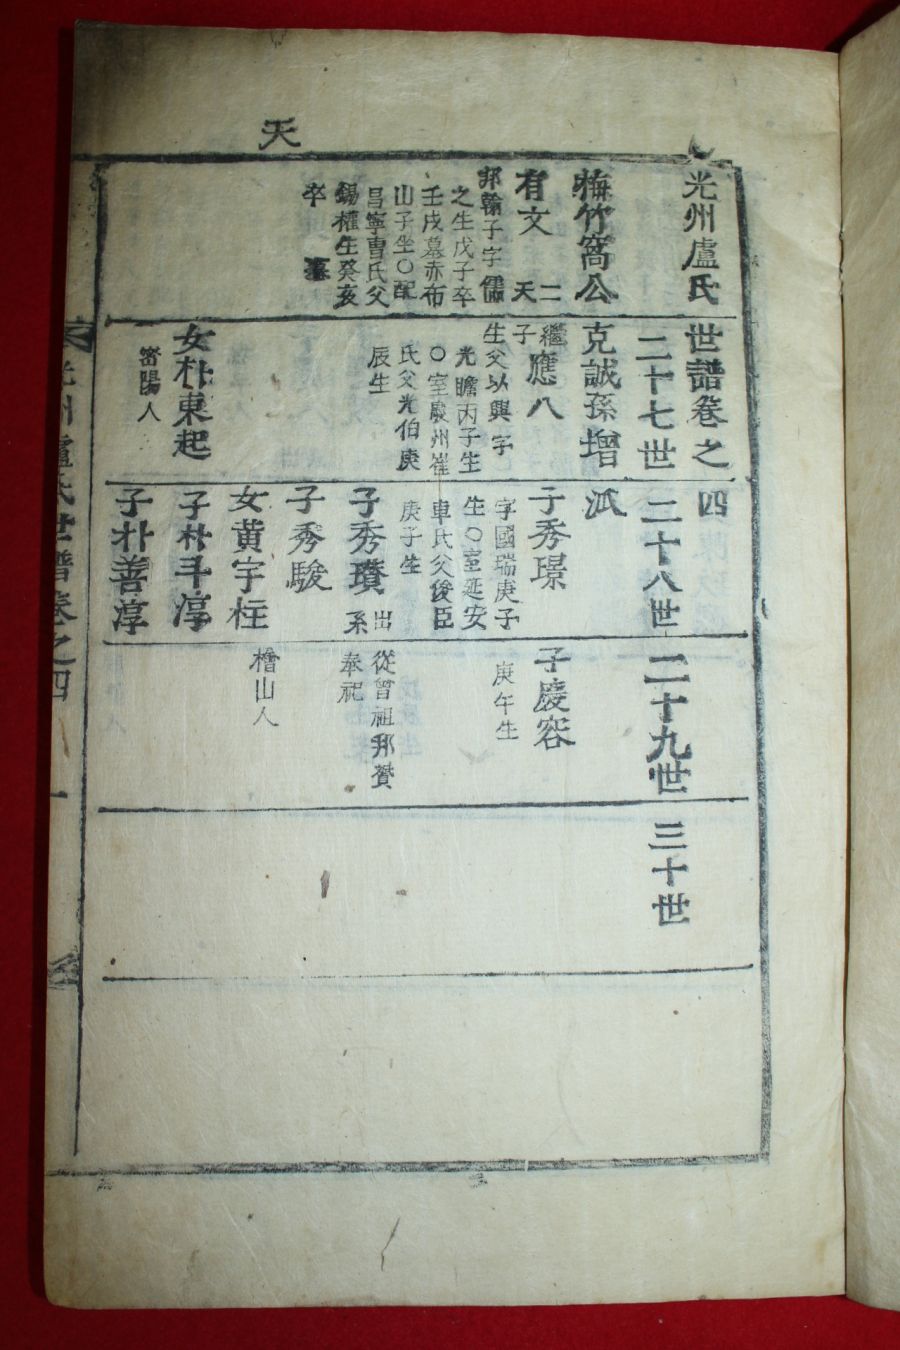 天
光州盧氏世譜卷之四
二十七世 二十八世 二十九世 三十世
梅竹窩公克誠孫增派
有文 二天
邦翰子字儒
之生戊子卒
壬戌墓赤布
山子坐○配
昌寧曺氏父
錫權生癸亥
卒 墓
繼子應八
生父以興字
光瞻丙子生
○室
州崔
氏父光伯庚
辰生
女朴東起
密陽人
子秀璟
字國瑞庚子
生○室延安
車氏父俊臣
庚子生
子秀瓚 出系
子秀駿
女黃宇柱
子朴斗淳
子朴善淳
子慶容
庚午生
從曾祖邦贊
奉祀
檜山人
光州盧氏世譜卷之四 一